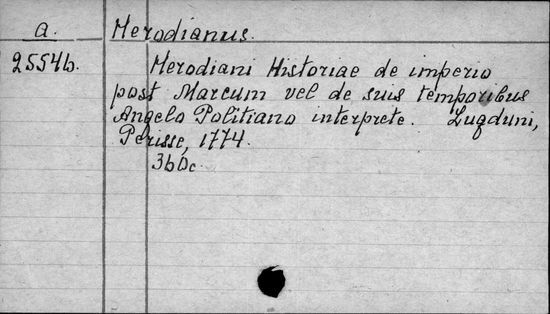 a. Herodianus.
25546. Herodiani Historiae de imperio
post Marcum vel de suis temporibus
Angelo Politiano interprete. Lugduni,
Perisse, 1774.
36Dc.